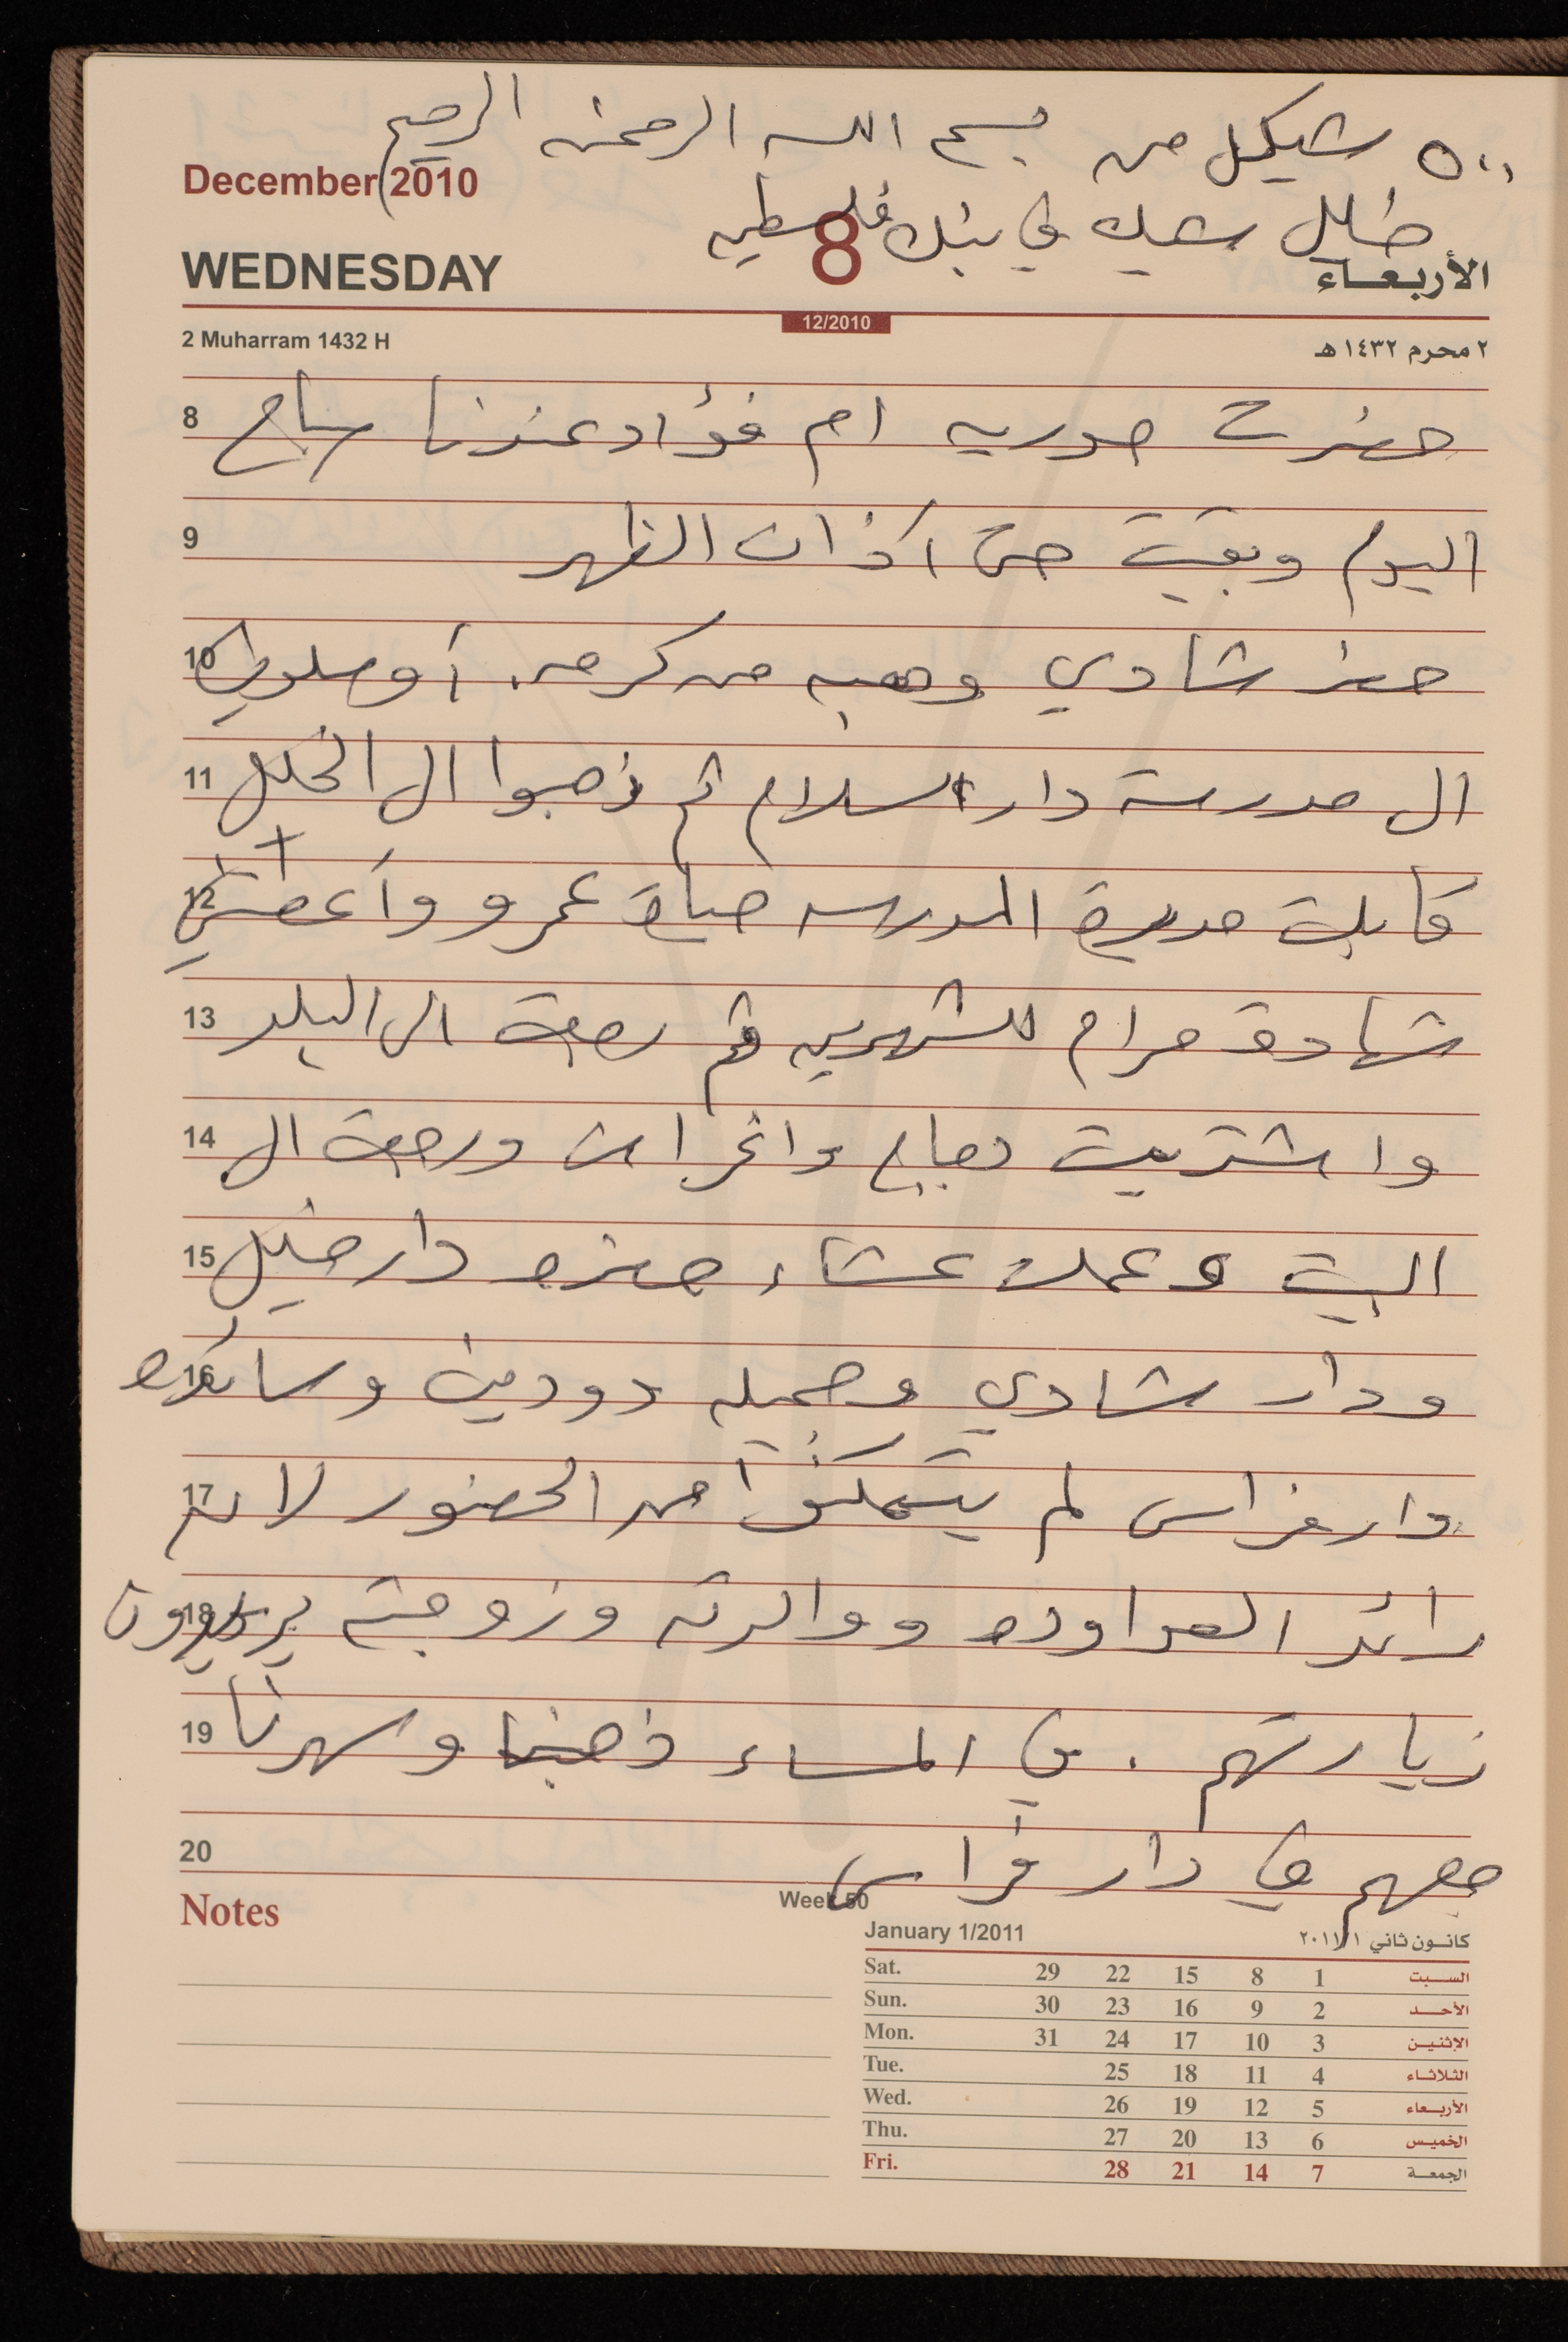 ٥٠٠ شيكل من بسم الله الرحمن الرحيم
خليل سعيد في بنك فلسطين
December 2010
WEDNESDAY
8
الأربعاء
12/2010
2 Muharram 1432 H
٢ محرم ١٤٣٢ هـ
8 حضرت حوريه ام فؤاد عندنا صباح
9 اليوم وبقيت حتى آذان الظهر
10 حضر شادي وهبه من كرمه. أوصلوني
11 الى مدرسة دار السلام ثم ذهبوا الى الخليل
12 قابلت مديرة المدرسه عمرو وأعطتني
13 شهادة مرام للشهرين ثم رجعت الى البلد
14 واشتريت دجاج واغراض ورجعت الى
15 البيت وعملت عشاء حضره دار خليل
16 ودار شادي وجميله دودين
17 دار فراس لم يتمكنوا من الحضور لان
18 رائد العواوده ووالدته وزوجته يريدون
19 زيارتهم. في المساء ذهبنا وسهرنا
20 معهم في دار فراس
Notes
Week 50
January 1/2011
كانون ثاني ٢٠١١/١
Sat. 29 22 15 8 1 السبت
Sun. 30 23 16 9 2 الأحد
Mon. 31 24 17 10 3 الإثنين
Tue. 25 18 11 4 الثلاثاء
Wed. 26 19 12 5 الأربعاء
Thu. 27 20 13 6 الخميس
Fri. 28 21 14 7 الجمعة